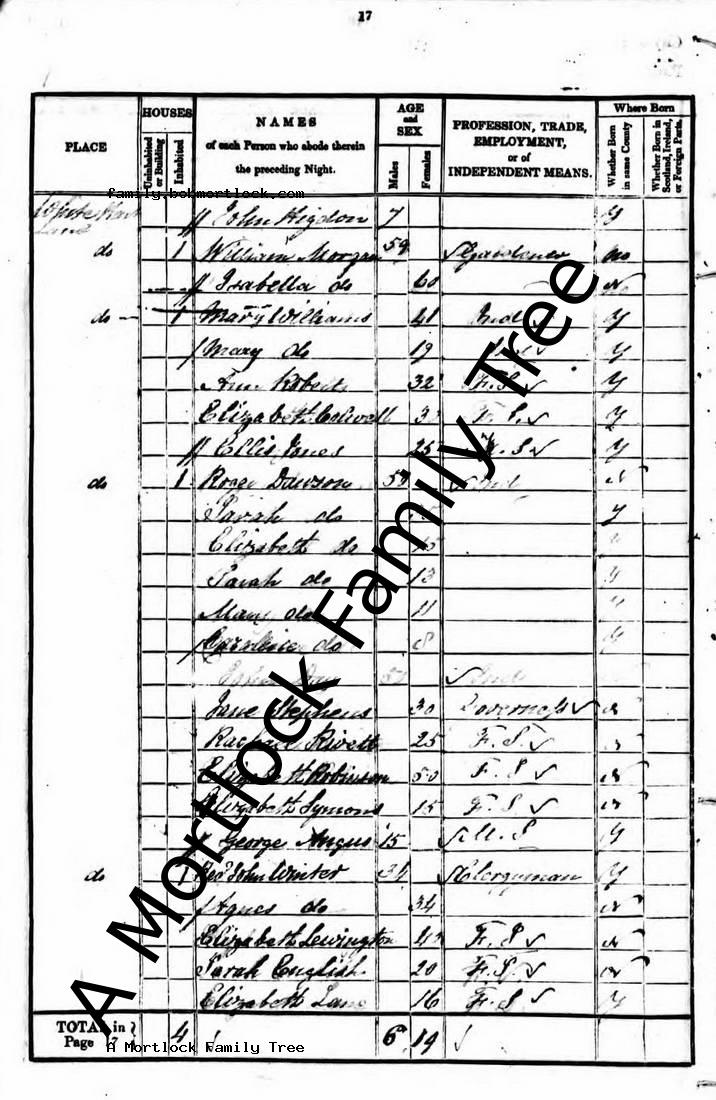 17
PLACE
HOUSES
Uninhabited or Building
Inhabited
NAMES
of each Person who abode therein
the preceding Night.
AGE
and
SEX
Males
Females
PROFESSION, TRADE,
EMPLOYMENT,
or of
INDEPENDENT MEANS.
Where Born
Whether Born in same County
Whether Born in Scotland, Ireland, or Foreign Parts.
family.bobmortlock.com
Lane
John Higdon 7 y
do 1 William Morgan 59 Gardener no
Isabella do 60 N
do 1 Mary Williams 41 Ind y
Mary do 19 y
Ann Robert 32 F.S y
Elizabeth Colwell F.S. y
Ellis Jones 25 F.S y
do 1 Dawson N
Sarah do y
Elizabeth do 15
Sarah do 13 y
Mary do 11
Caroline do 8 y
Ind
Jane Stephens 30 Governess N
Rachael Rivett 25 F.S
Elizabeth Robinson 50 F.S N
Elizabeth Symons 15 F.S N
George Angus 15 M.S y
do 1 Revd John Winter Clergyman y
Agnes do 34 N
Elizabeth Lewington F.S N
Sarah English 20 F.S. N
Elizabeth Lane 16 F.S y
TOTAL in Page 17 4 6 19
A Mortlock Family Tree
A Mortlock Family Tree